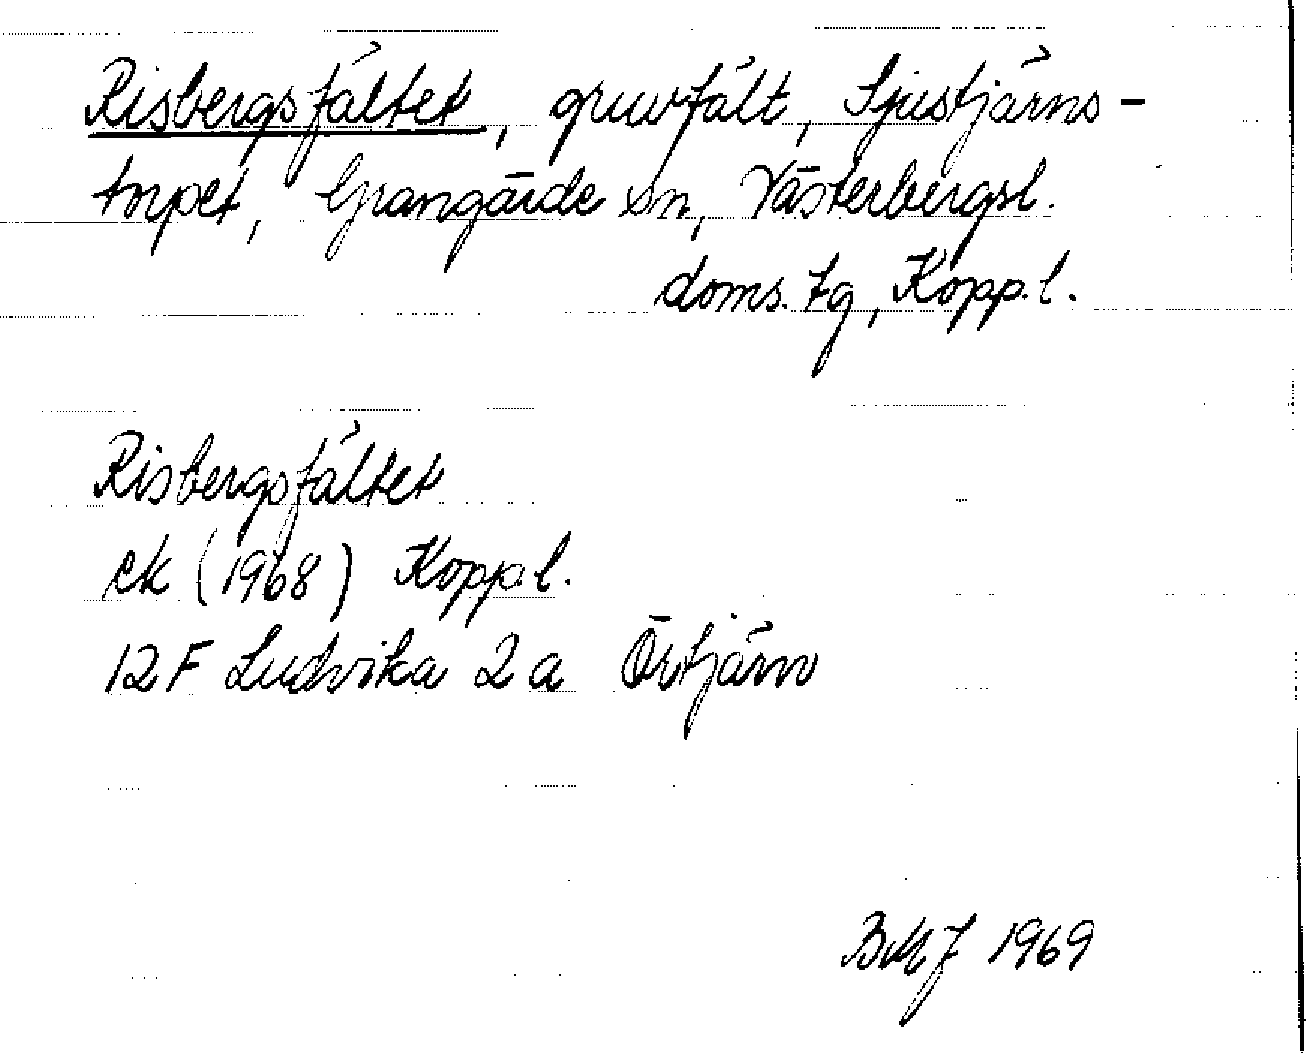 Risbergsfältet, gruvfält, Ljustjärns-
torpet, Grangärde sn, Västerbergsl.
doms. fg, Kopp.l.
Risbergsfältet
ek (1968) Kopp.l.
12F Ludvika 2a Örtjärn
BMJ 1969